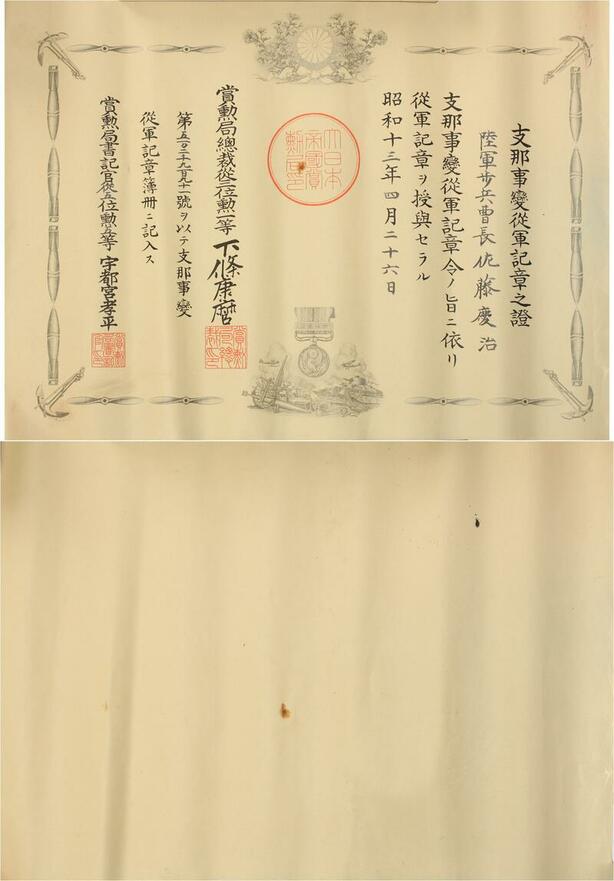 支那事變從軍記章之證
陸軍步兵曹長佐藤慶治
支那事變從軍記章令ノ旨ニ依リ
從軍記章ヲ授與セラル
昭和十三年四月二十六日
大日本
帝國賞
勳局印
賞勳局總裁從三位勳一等下條康麿
第五〇三千九百九十一號ヲ以テ支那事變
從軍記章簿册ニ記入ス
賞勳局書記官從五位勳五等宇都宮孝平